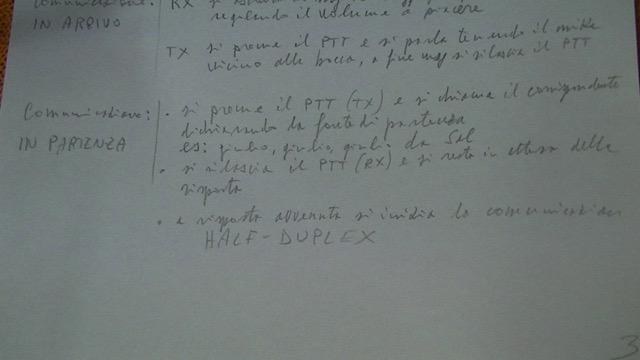 Comunicazione: RX si
IN ARRIVO regolando il volume a piacere
TX si preme il PTT e si parla tenendo il mike
vicino alla bocca, a fine msg si rilascia il PTT
Comunicazione: • si preme il PTT (TX) e si chiama il corrispondente
IN PARTENZA dichiarando la fonte di partenza
es: giulio, giulio, giulio da Sal
• si rilascia il PTT (RX) e si resta in attesa della
risposta
• a risposta avvenuta si inizia la comunicazione
HALF-DUPLEX
3